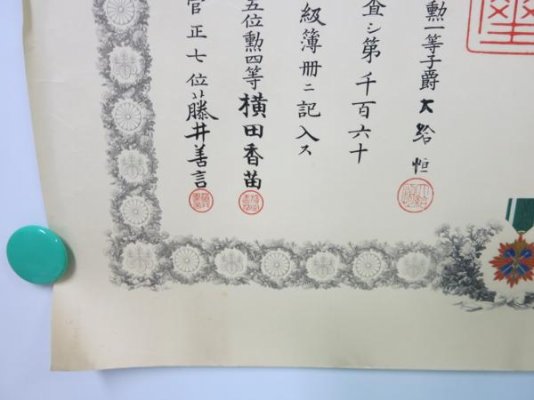 勲一等子爵大給恒
査シ第千百六十
級簿册ニ記入ス
五位勲四等横田香苗
官正七位藤井善言